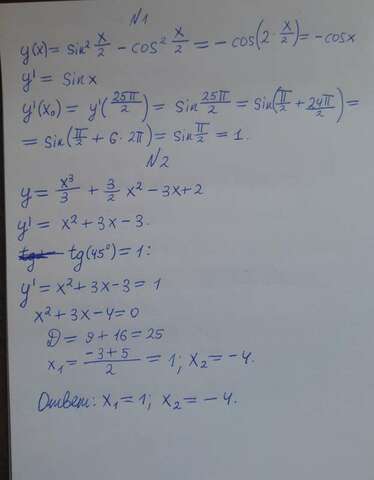 №1
y(x) = sin² x/2 - cos² x/2 = - cos(2 · x/2) = - cosx
y' = sin x
y'(x₀) = y'(25π/2) = sin 25π/2 = sin(π/2 + 24π/2) =
= sin(π/2 + 6 · 2π) = sin π/2 = 1.
№2
y = x³/3 + 3/2 x² - 3x + 2
y' = x² + 3x - 3.
tg(45°) = 1:
y' = x² + 3x - 3 = 1
x² + 3x - 4 = 0
D = 9 + 16 = 25
x₁ = (-3 + 5)/2 = 1; x₂ = -4.
Ответ: x₁ = 1; x₂ = -4.